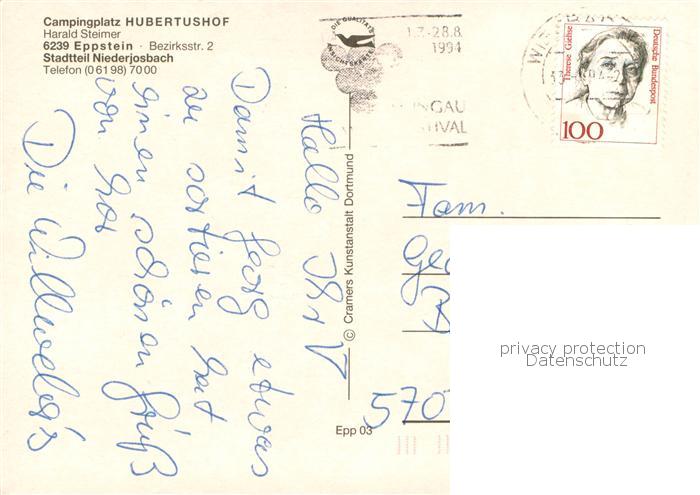 Campingplatz HUBERTUSHOF
Harald Steimer
6239 Eppstein · Bezirksstr. 2
Stadtteil Niederjosbach
Telefon (0 61 98) 70 00
DIE QUALITÄTS
1.7.-28.8.
1994
NGAU
IVAL
WIESBADEN
Therese Giehse
Deutsche Bundespost
100
Hallo Ihr V
Damit Georg etwas
zu sortieren hat
einen schönen Gruß
von hier
Die Willwebers
© Cramers Kunstanstalt Dortmund
Epp 03
Fam.
Ge
570
privacy protection
Datenschutz